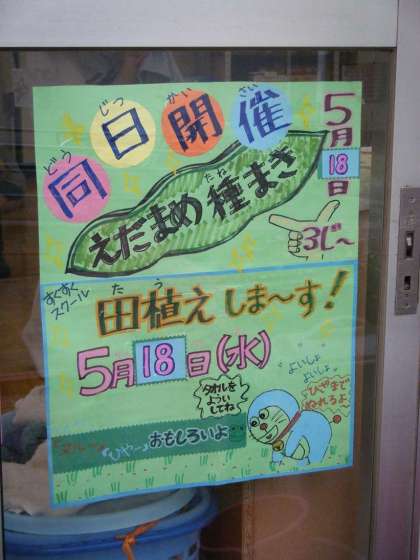 同日開催
どう じつ かい さい
5月18日
えだまめ種まき
たね
3じ～
すくすくスクール
田植えしま～す!
た う
5月18日(水)
タオルをよういしてね
よいしょ
よいしょ
ひやまで
ぬれろよ
ヌルーッ
ひやーっ
おもしろいよ